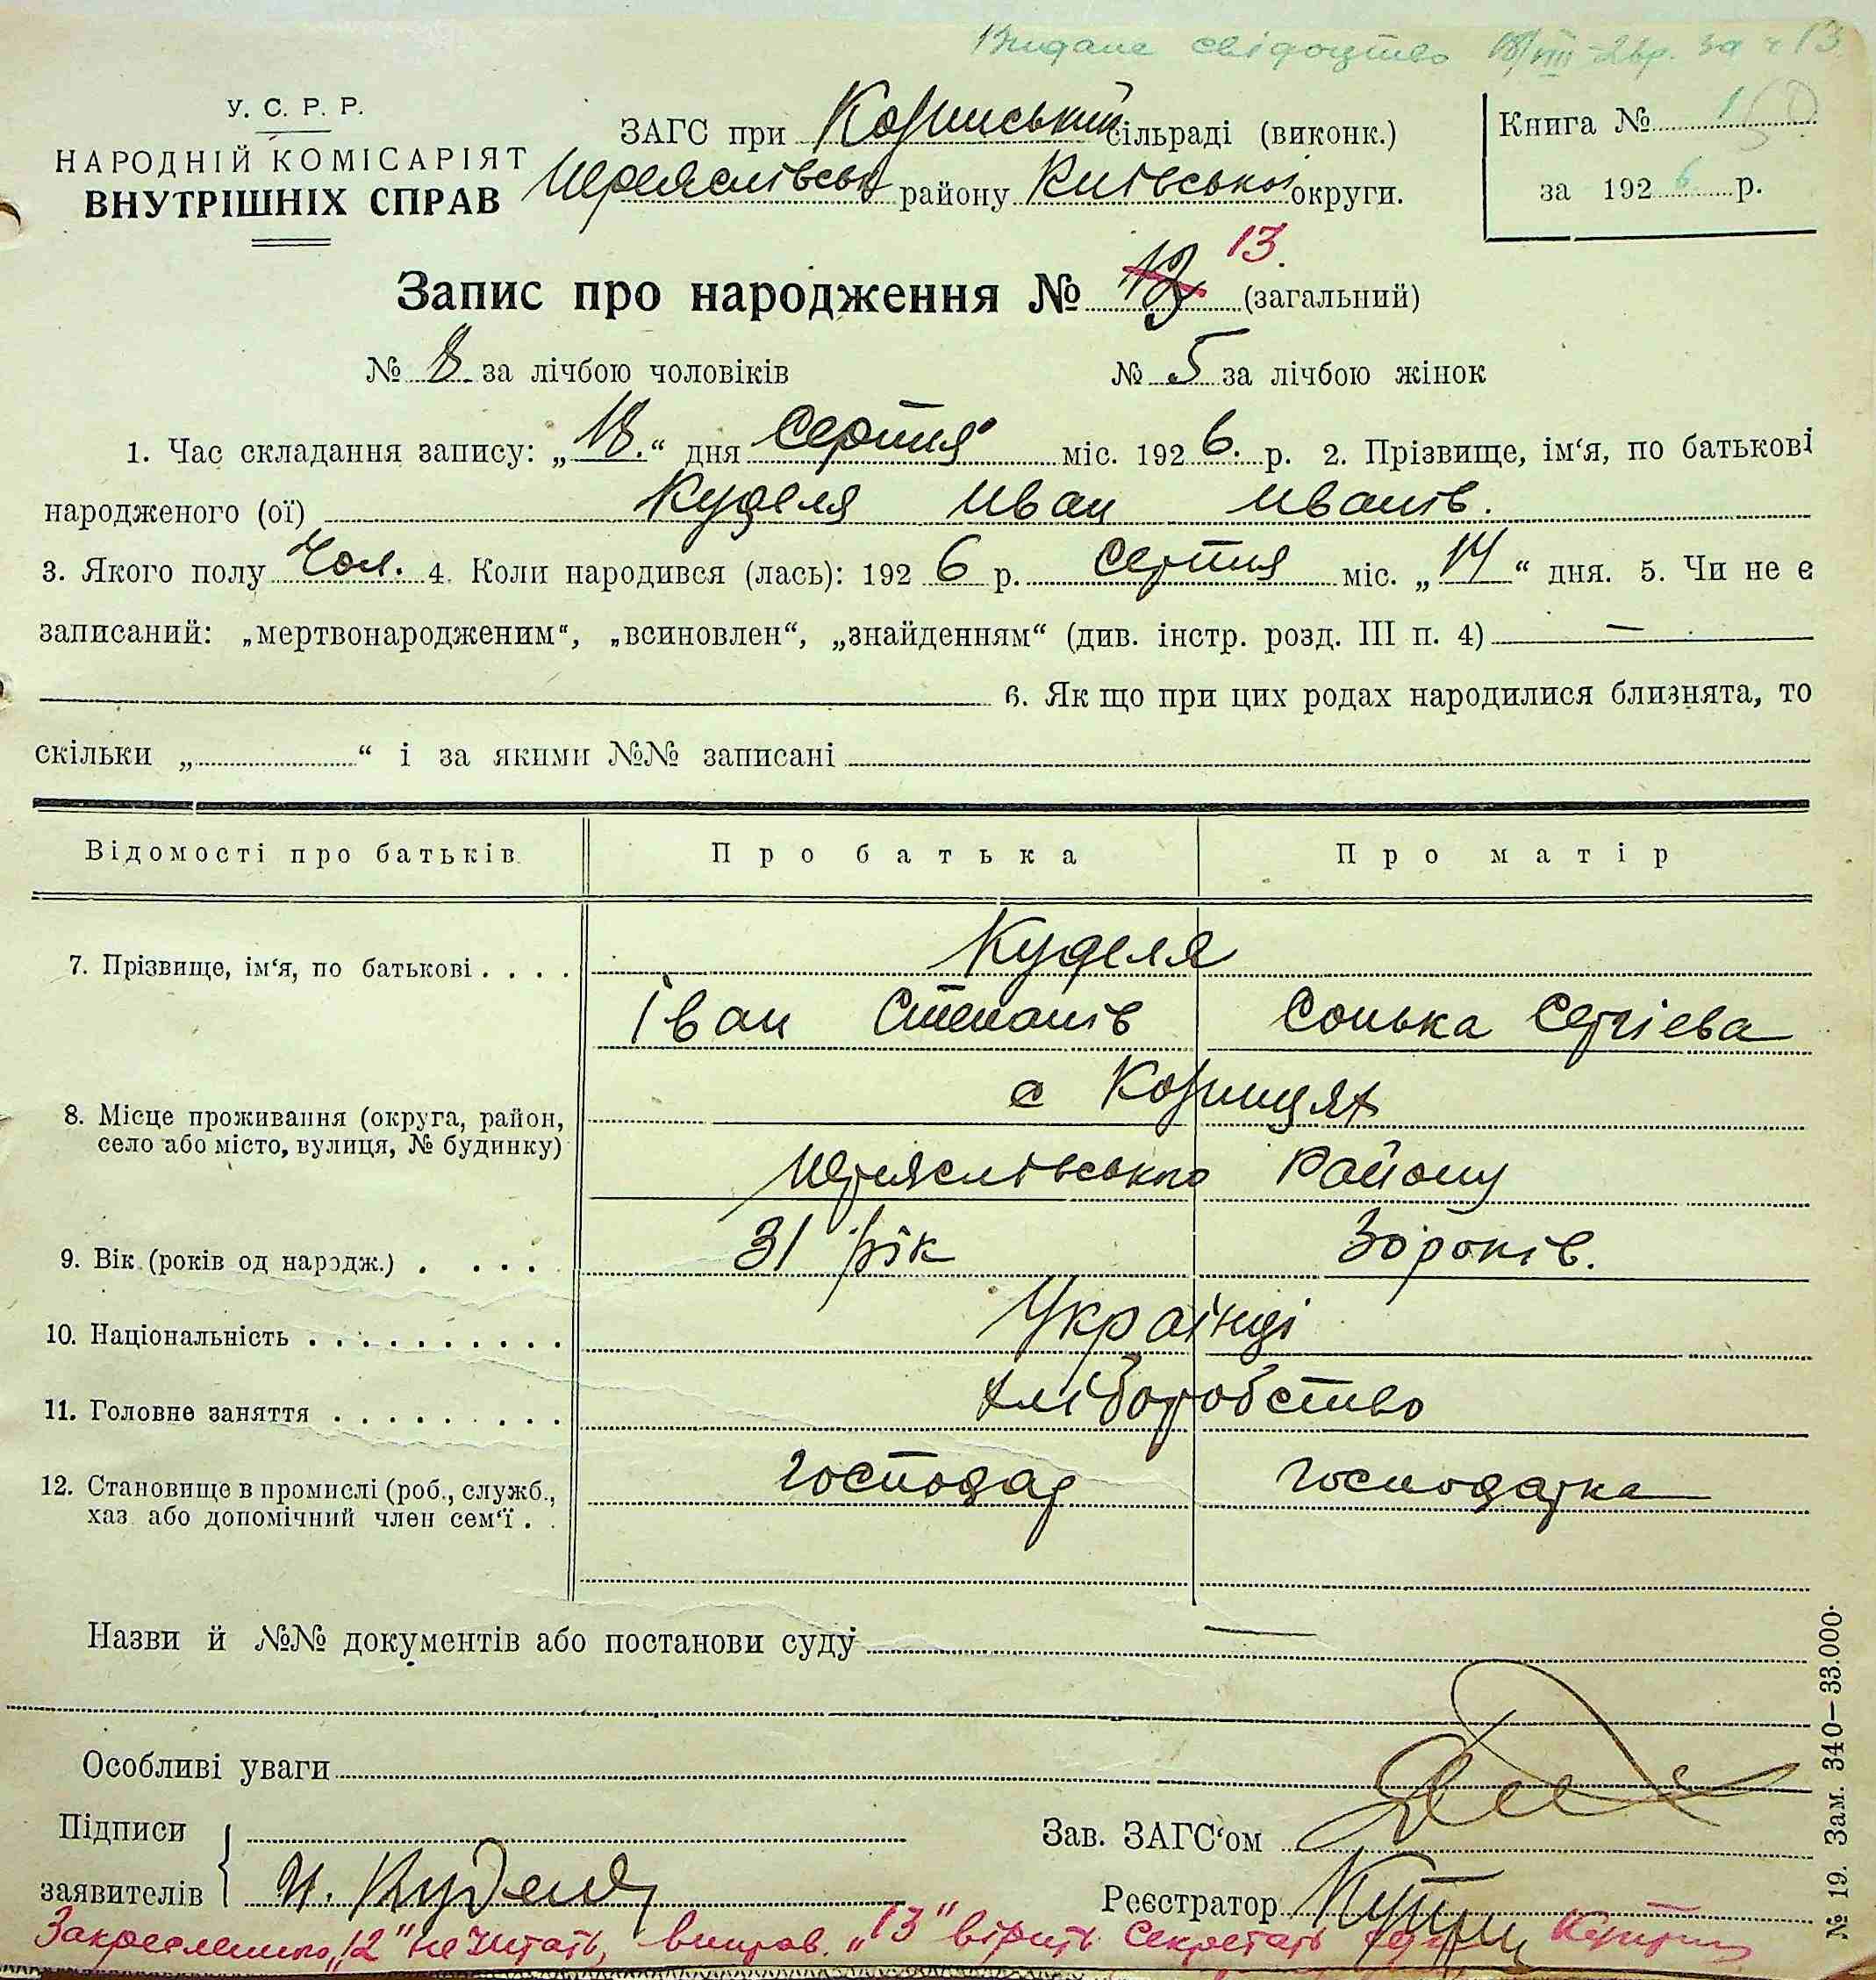 Видане свідоцтво 18/VIII-26р. за ч 13
У. С. Р. Р.
НАРОДНІЙ КОМІСАРІЯТ
ВНУТРІШНІХ СПРАВ
ЗАГС при сільраді (виконк.)
району Київської округи.
Книга № 1
за 1926 р.
Запис про народження № 12 13. (загальний)
№ 8. за лічбою чоловіків № 5 за лічбою жінок
1. Час складання запису: „18.“ дня серпня міс. 1926. р. 2. Прізвище, ім‘я, по батькові
народженого (ої) Куделя Иван Иванів.
3. Якого полу Чол. 4. Коли народився (лась): 1926 р. серпня міс. „14“ дня. 5. Чи не є
записаний: „мертвонародженим“, „всиновлен“, „знайденням“ (див. інстр. розд. III п. 4) —
6. Як що при цих родах народилися близнята, то
скільки „ “ і за якими №№ записані
Відомості про батьків. Про батька Про матір
7. Прізвище, ім‘я, по батькові . . . . Куделя
Іван Степанів Сонька Сергієва
8. Місце проживання (округа, район, село або місто, вулиця, № будинку) с
району
9. Вік (років од народж.) . . . . 31 рік 30 років.
10. Національність . . . . . . . . . . Українці
11. Головне заняття . . . . . . . . . хліборобство
12. Становище в промислі (роб., служб., хаз або допомічний член сем‘ї . . господар господарка
Назви й №№ документів або постанови суду —
Особливі уваги
Підписи
заявителів И. Куделя
Зав. ЗАГС‘ом
Реєстратор
Закресленно „12" не читать, виправ. „13" вірить Секретарь
№ 19. Зам. 340—33.000.